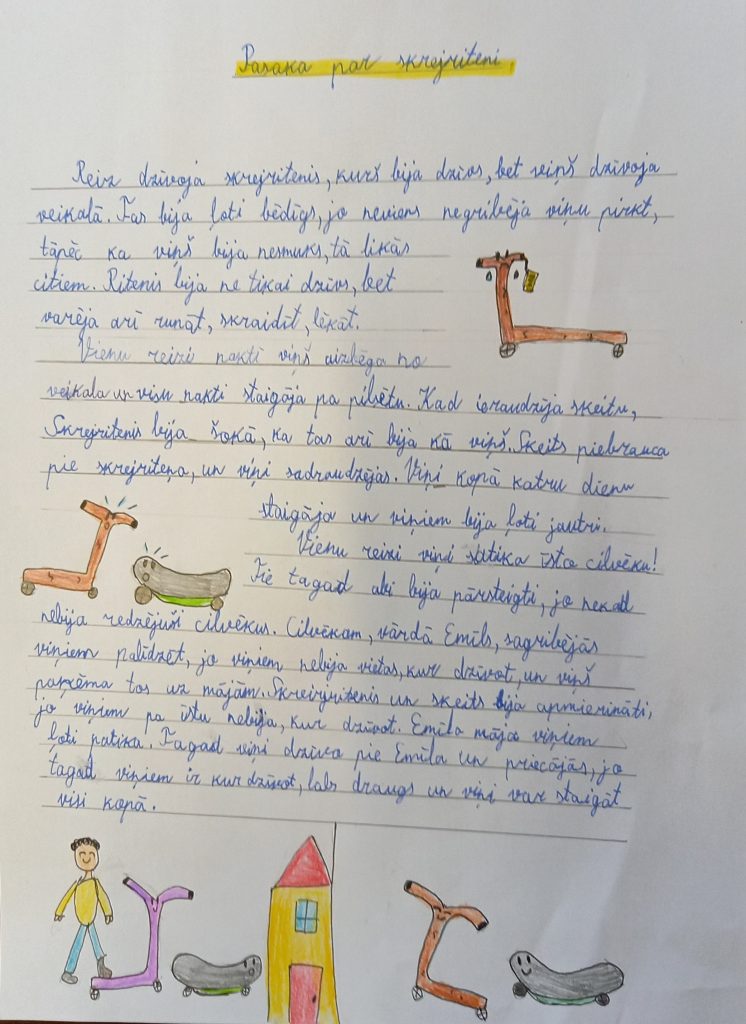 Pasaka par skrejriteni.
Reiz dzīvoja skrejritenis, kurš bija dzīvs, bet viņš dzīvoja
veikalā. Tas bija ļoti bēdīgs, jo neviens negribēja viņu pirkt,
tāpēc ka viņš bija nesmuks, tā likās
citiem. Ritenis bija ne tikai dzīvs, bet
varēja arī runāt, skraidīt, lēkāt.
Vienu reizi naktī viņš aizbēga no
veikala un visu nakti staigāja pa pilsētu. Kad ieraudzīja skeitu,
Skrejritenis bija šokā, ka tas arī bija kā viņš. Skeits piebrauca
pie skrejriteņa, un viņi sadraudzējās. Viņi kopā katru dienu
staigāja un viņiem bija ļoti jautri.
Vienu reizi viņi satika īsto cilvēku!
Tie tagad abi bija pārsteigti, jo nekad
nebija redzējuši cilvēkus. Cilvēkam, vārdā Emils, sagribējās
viņiem palīdzēt, jo viņiem nebija vietas, kur dzīvot, un viņš
paņēma tos uz mājām. Skrejritenis un skeits bija apmierināti,
jo viņiem pa īstu nebija, kur dzīvot. Emīla mājā viņiem
ļoti patika. Tagad viņi dzīvo pie Emīla un priecājās, jo
tagad viņiem ir kur dzīvot, labs draugs un viņi var staigāt
visi kopā.